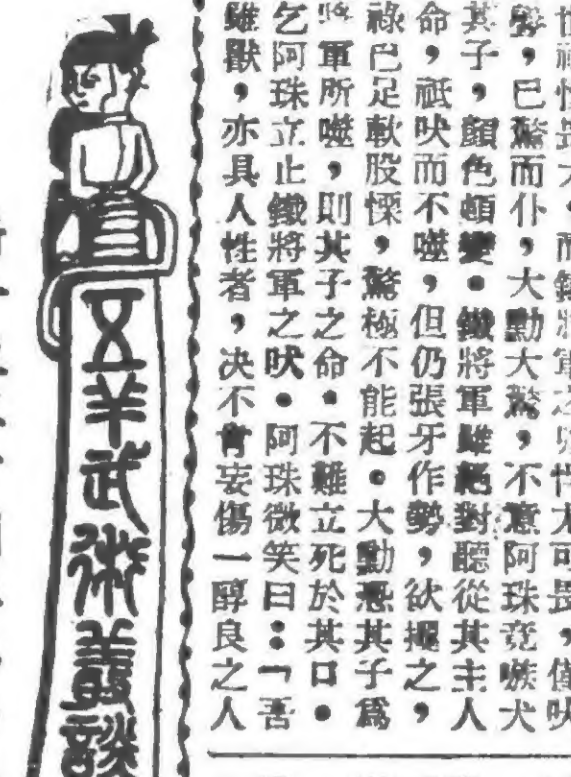 畏犬，而鐵將軍之吠尤可畏，僅吠
已驚而仆，大勳大驚，不意阿珠竟嗾犬
其子，顏色頓變。鐵將軍雖絕對聽從其主人
命，祇吠而不噬，但仍張牙作勢，欲攫之，
祿已足軟股慄，驚極不能起。大勳恐其子爲
將軍所噬，則其子之命。不難立死於其口。
乞阿珠立止鐵將軍之吠。阿珠微笑曰：「吾
雖獸，亦具人性者，决不肯妄傷一醇良之人
五羊武術叢談